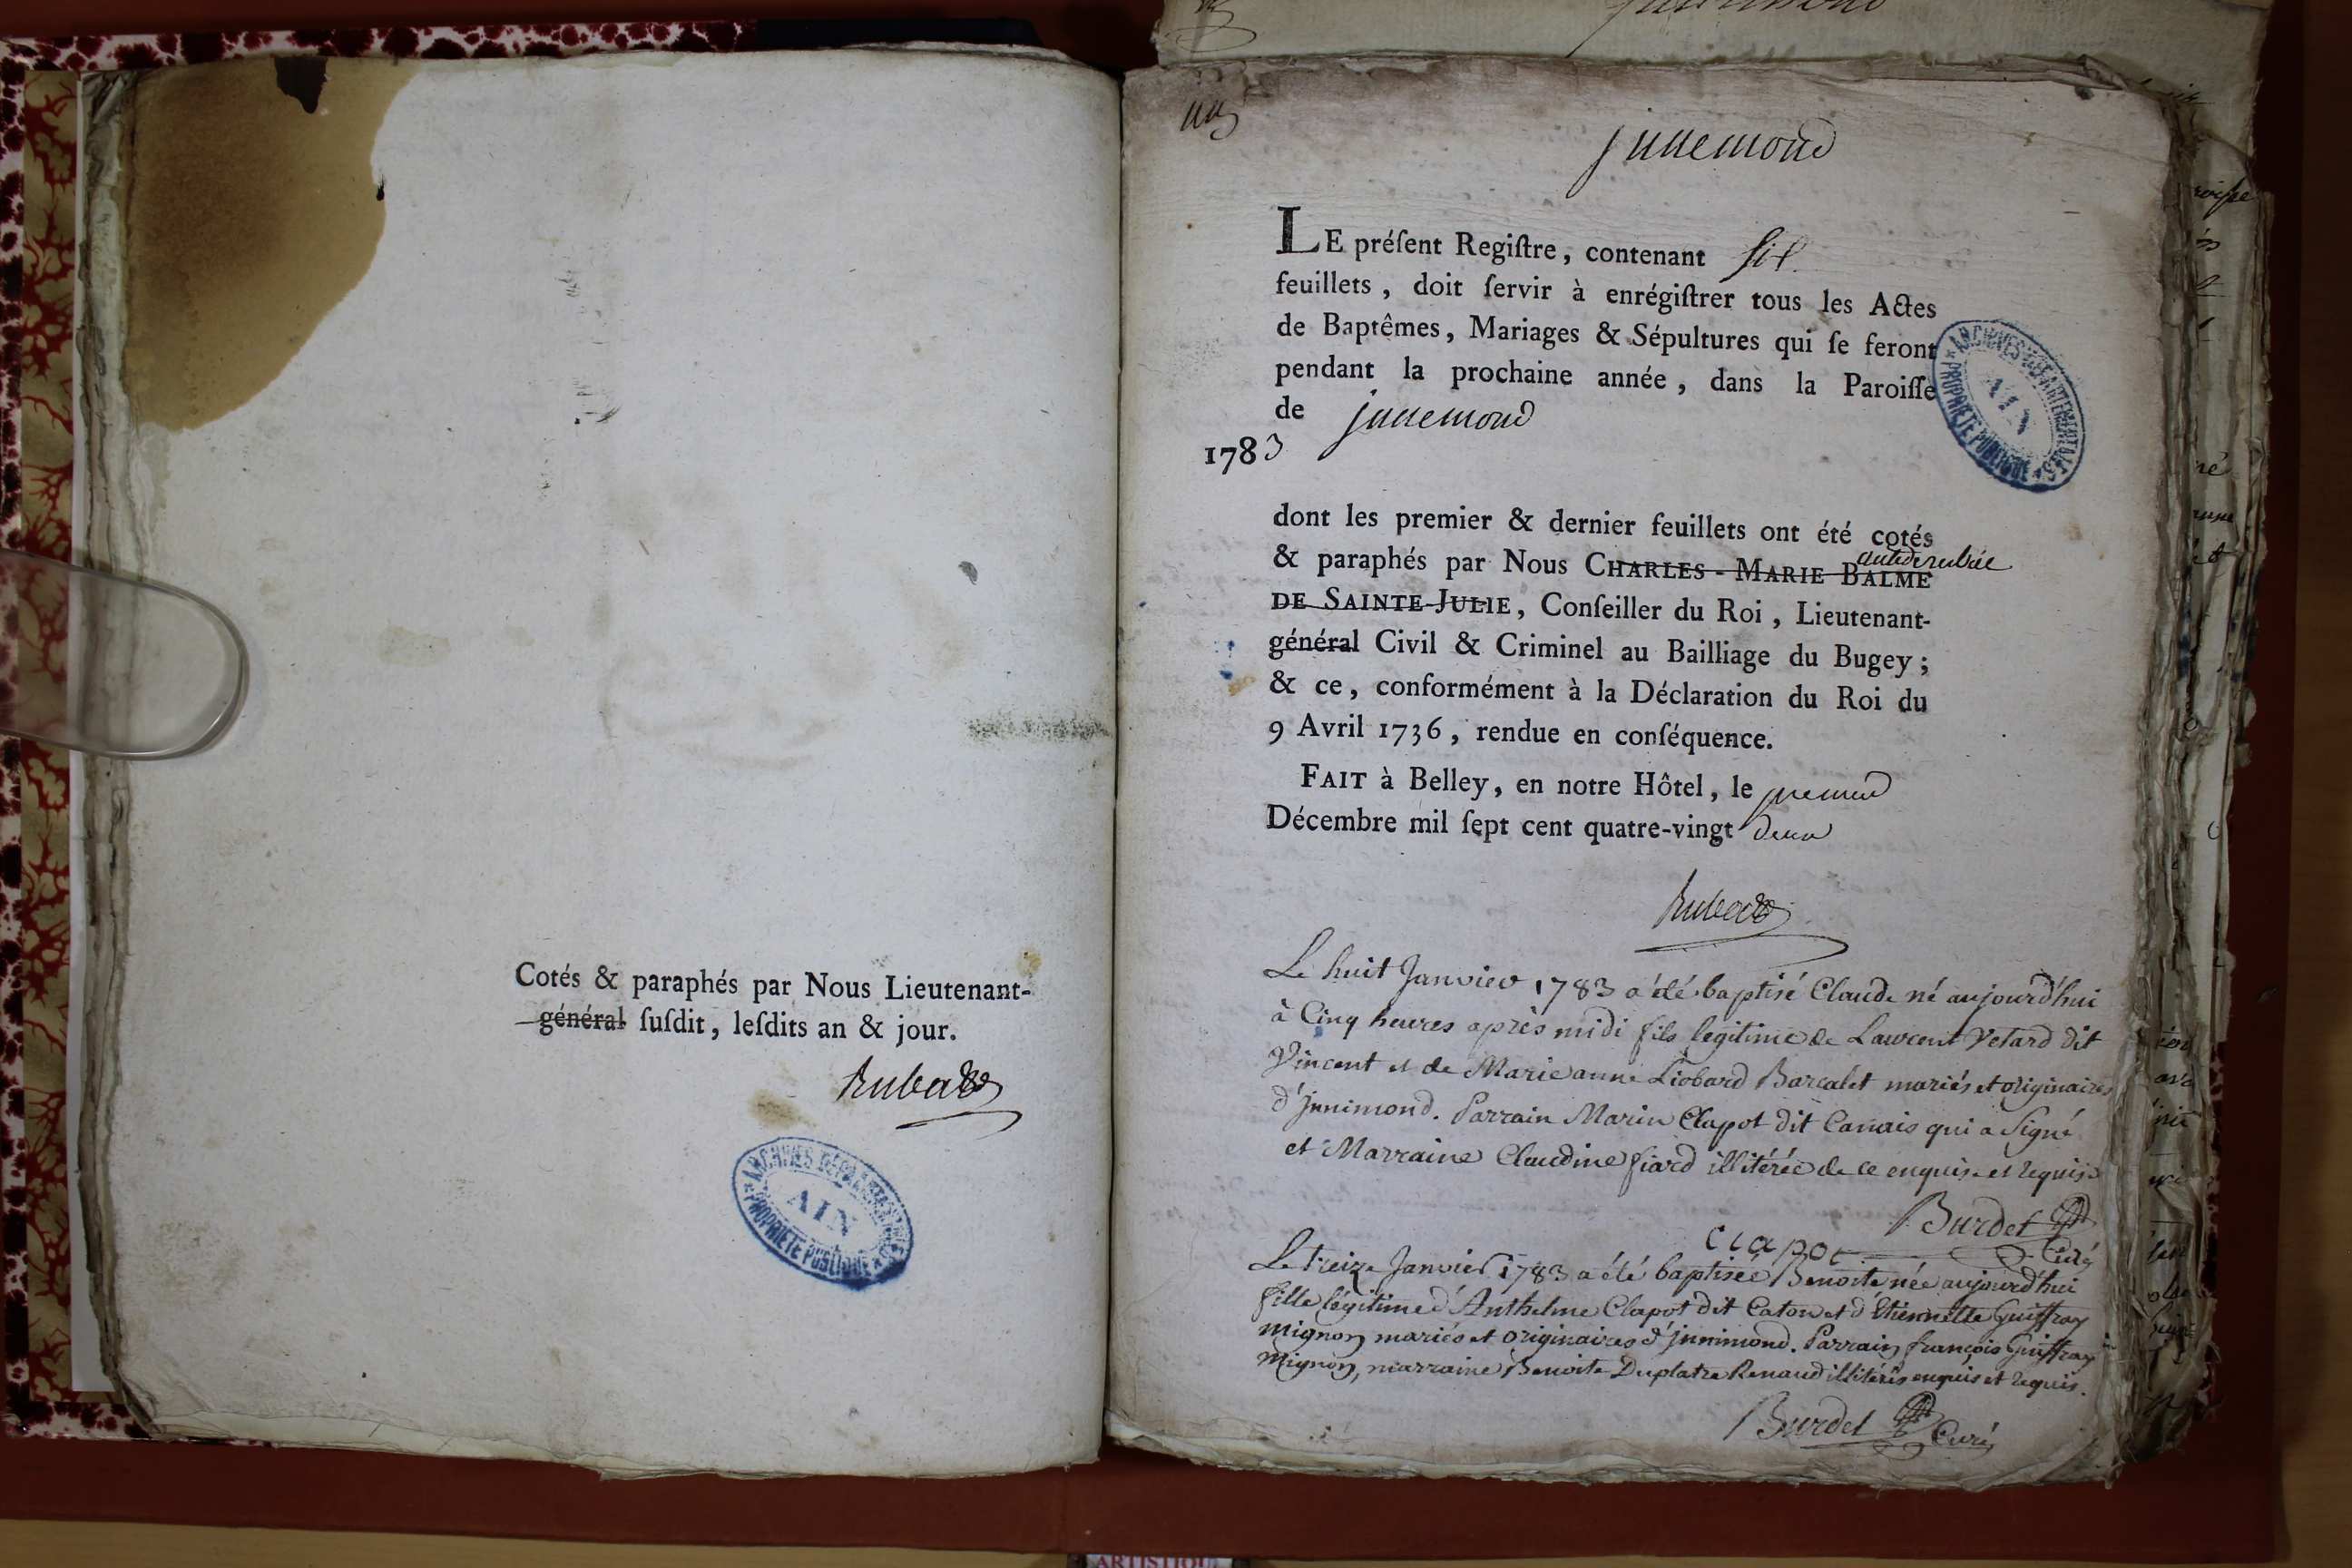 Cotés & paraphés par Nous Lieutenant-
général ſuſdit, leſdits an & jour.
ARCHIVES DÉPARTEMENTALES
AIN
PROPRIÉTÉ PUBLIQUE
LE préſent Regiſtre, contenant six
feuillets, doit ſervir à enrégiſtrer tous les Actes
de Baptêmes, Mariages & Sépultures qui ſe feront
pendant la prochaine année, dans la Paroiſſe
de
1783
ARCHIVES DÉPARTEMENTALES
AIN
PROPRIÉTÉ PUBLIQUE
dont les premier & dernier feuillets ont été cotés
& paraphés par Nous CHARLES-MARIE BALME
DE SAINTE-JULIE, Conſeiller du Roi, Lieutenant-
général Civil & Criminel au Bailliage du Bugey;
& ce, conformément à la Déclaration du Roi du
9 Avril 1736, rendue en conſéquence.
FAIT à Belley, en notre Hôtel, le premier
Décembre mil ſept cent quatre-vingt deux
Le huit Janvier 1783 a été baptisé Claude né aujourd'hui
à Cinq heures après midi fils legitime de Laurent Vetard dit
Vincent et de Marieanne Liobard Barcalet mariés et originaires
d'jnnimond. Parrain Marin Clapot dit Canais qui a Signé
et Marraine Claudine fiard illitérée de ce enquise et requise
Burdet Curé
Clapot
Le treize Janvier 1783 a été baptisée Benoite née aujourd'hui
fille légitime d'Anthelme Clapot dit Caton et d'Etiennette Guiffray
Mignon mariés et originaires d'jnnimond. Parrain françois Guiffray
Mignon, marraine Benoite Duplatre Renaud illitérés enquis et requis.
Burdet Curé
ARTISTIQUE